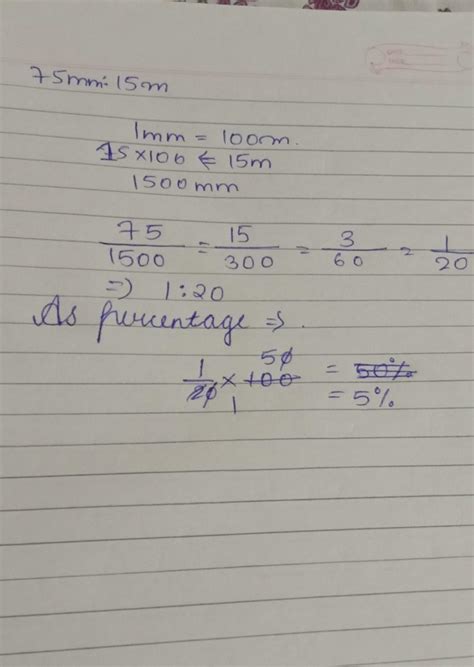 75mm : 15m
1mm = 100m.
15 ×100 ⇐ 15m
1500mm
75/1500 = 15/300 = 3/60 = 1/20
⇒ 1:20
As percentage ⇒ .
1/20 × 100 50 = 50%
1 = 5%